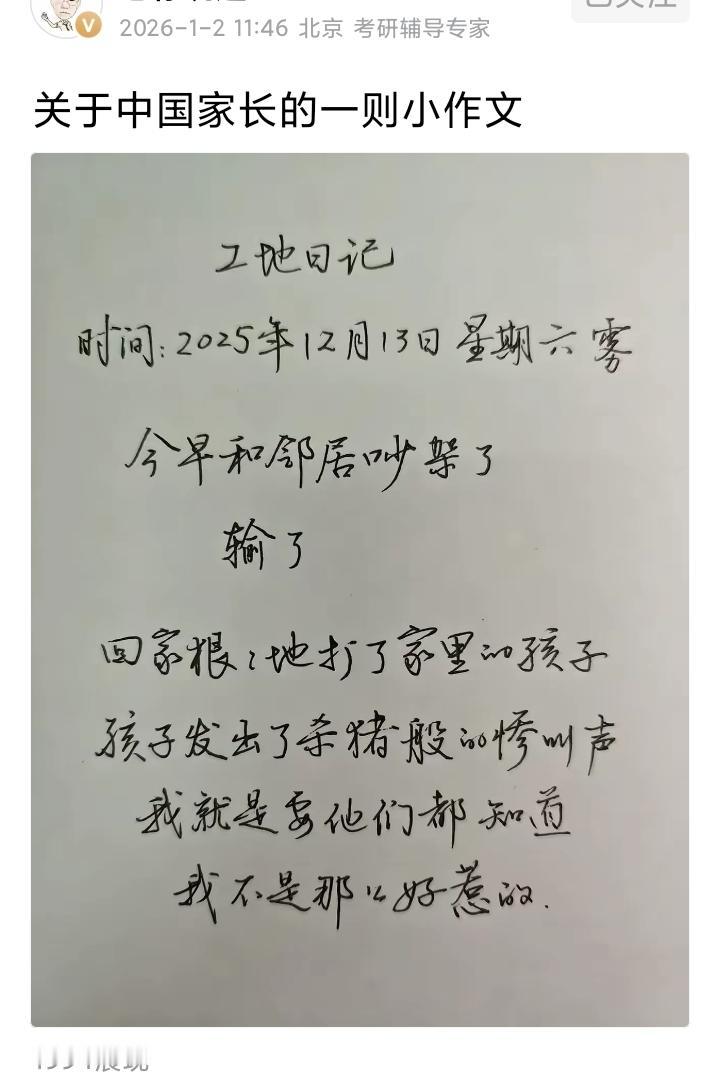 2026-1-2 11:46 北京 考研辅导专家
已关注
关于中国家长的一则小作文
工地日记
时间:2025年12月13日 星期六 雾
今早和邻居吵架了
输了
回家狠狠地打了家里的孩子
孩子发出了杀猪般的惨叫声
我就是要他们都知道
我不是那么好惹的.